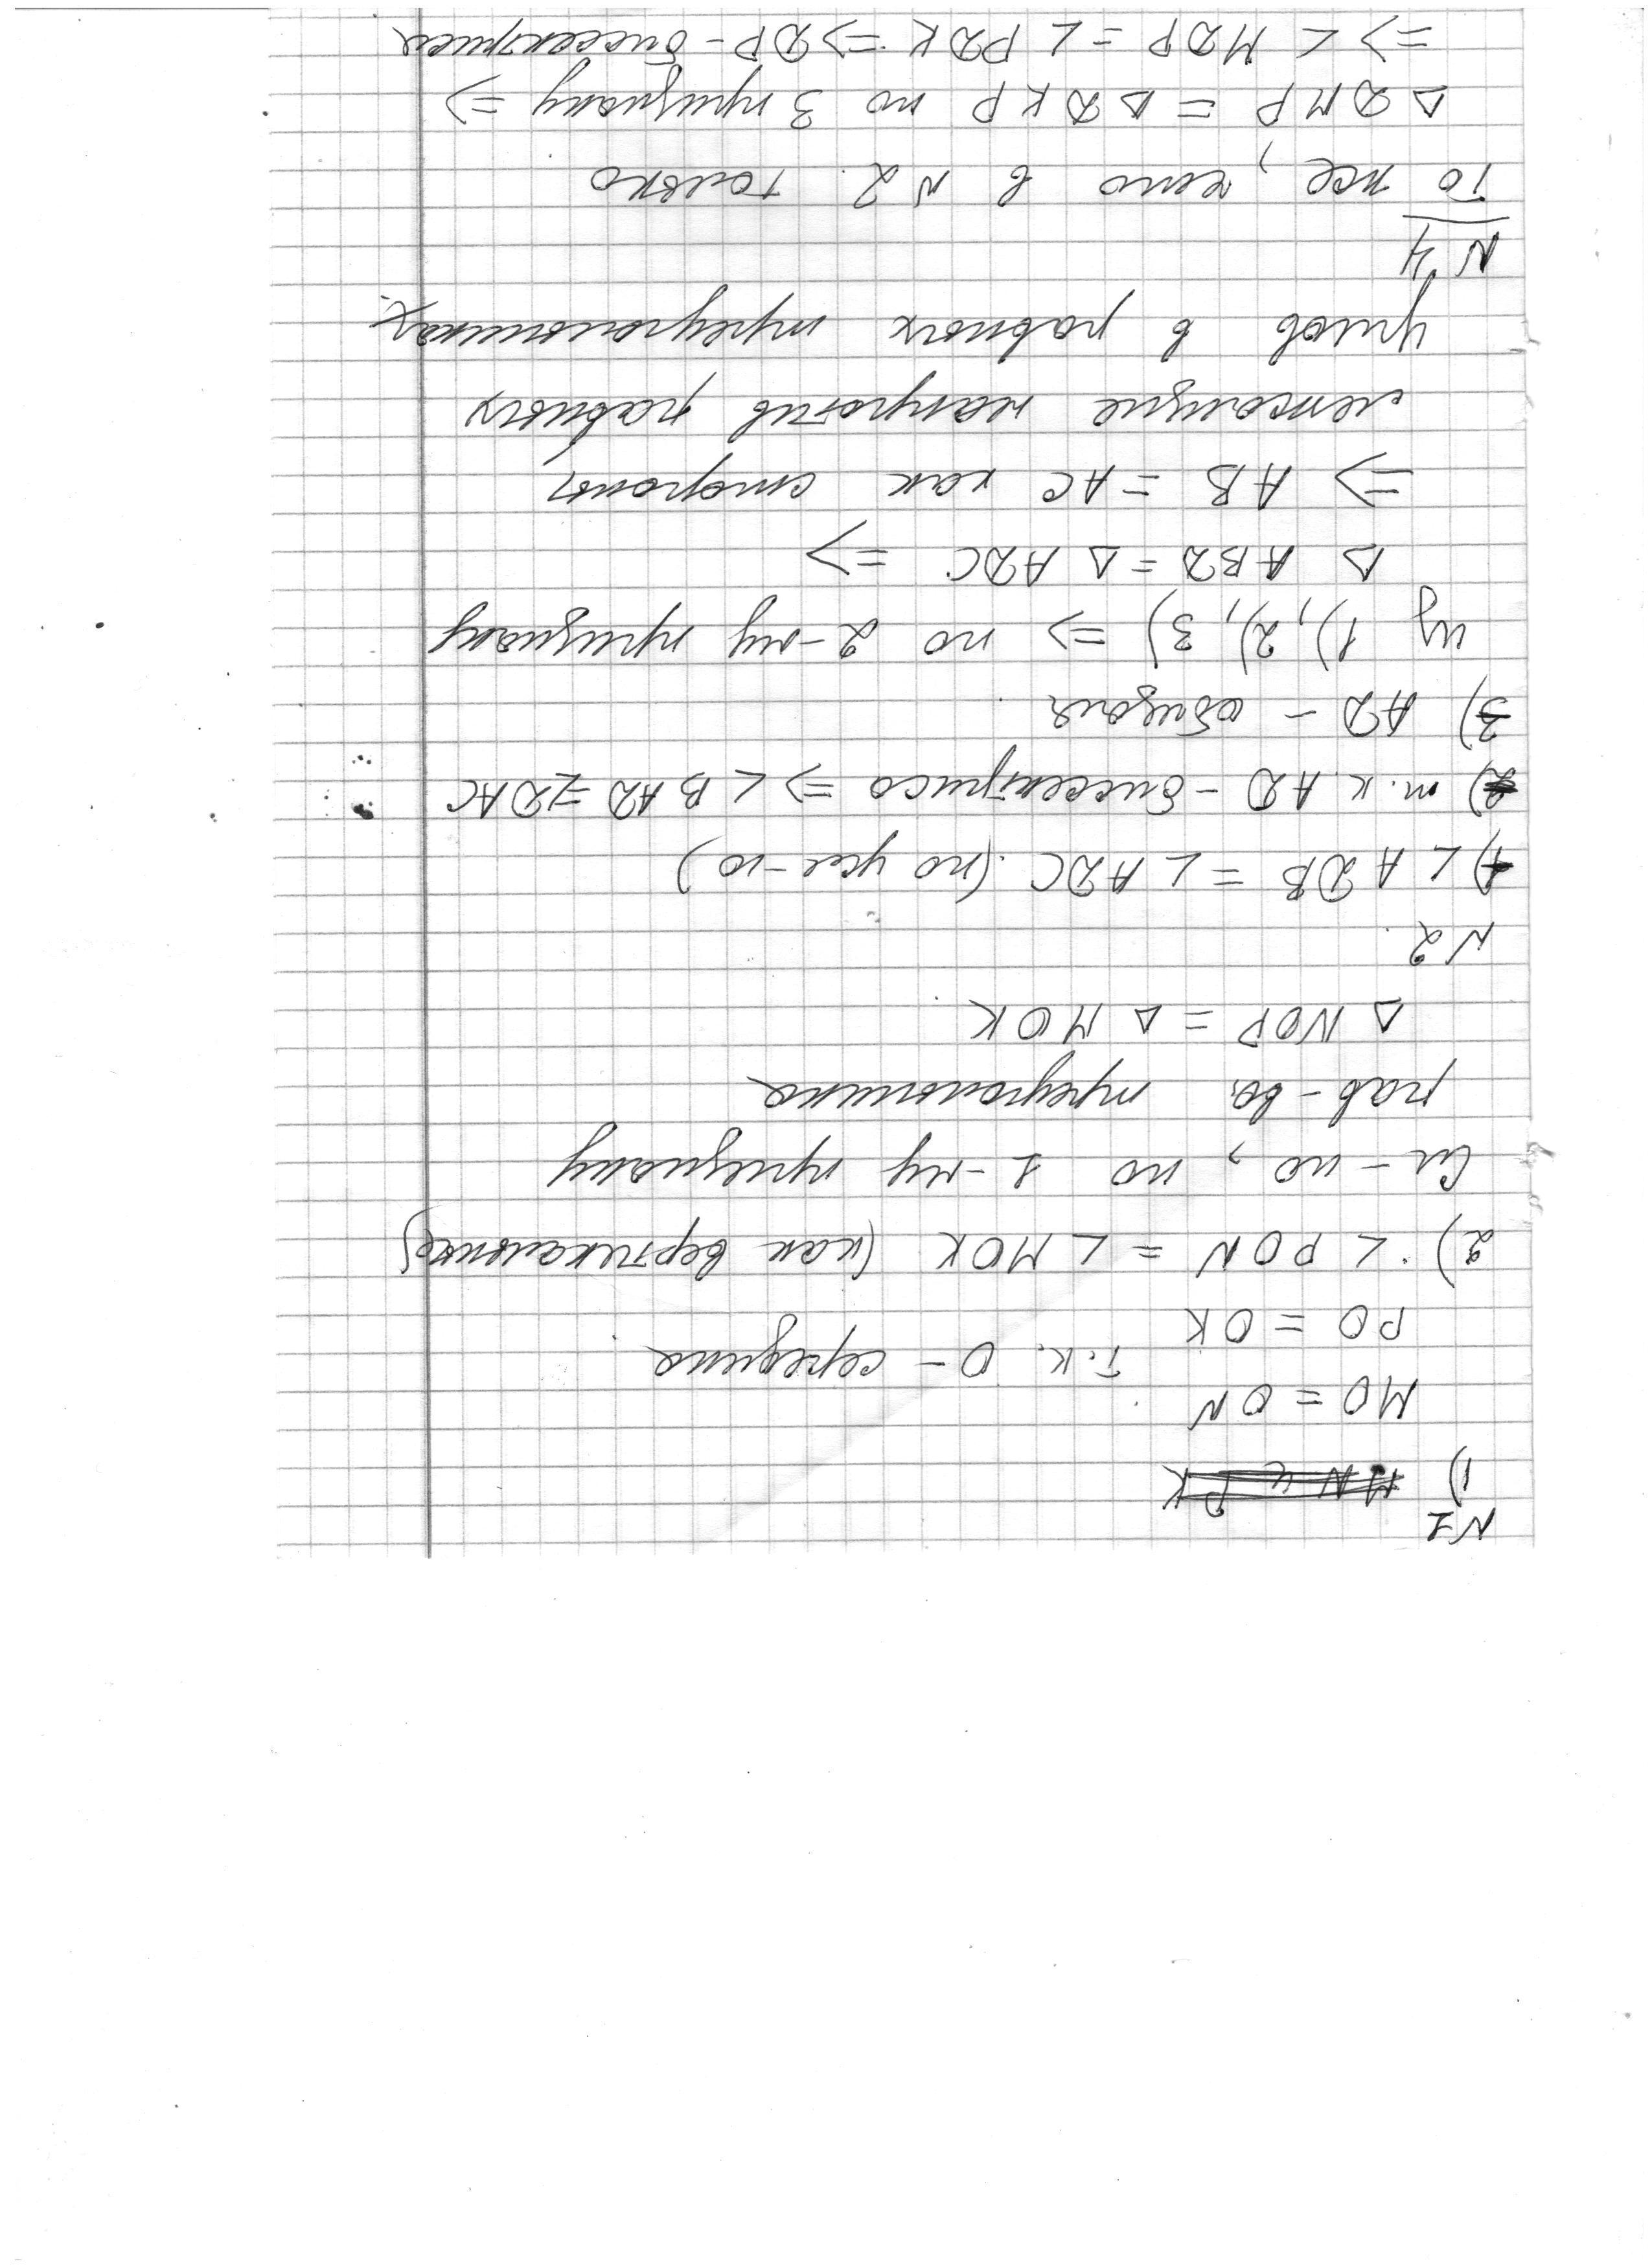 N 1
1) MN и PK
MO = ON
т.к. O - середина
PO = OK
2) ∠ PON = ∠ MOK (как вертикальные)
Сл-но, по 1-му признаку
рав-ва треугольника
△ NOP = △ MOK.
N 2.
1) ∠ ADB = ∠ ADC (по усл-ю)
2) т.к. AD - биссектриса => ∠ BAD = DAC
3) AD - общая.
Из 1), 2), 3) => по 2-му признаку
△ ABD = △ ADC =>
=> AB = AC как стороны
лежащие напротив равных
углов в равных треугольниках.
N 4
То же, что в N 2. только
△ DMP = △ DKP по 3 признаку =>
=> ∠ MDP = ∠ PDK => DP - биссектриса